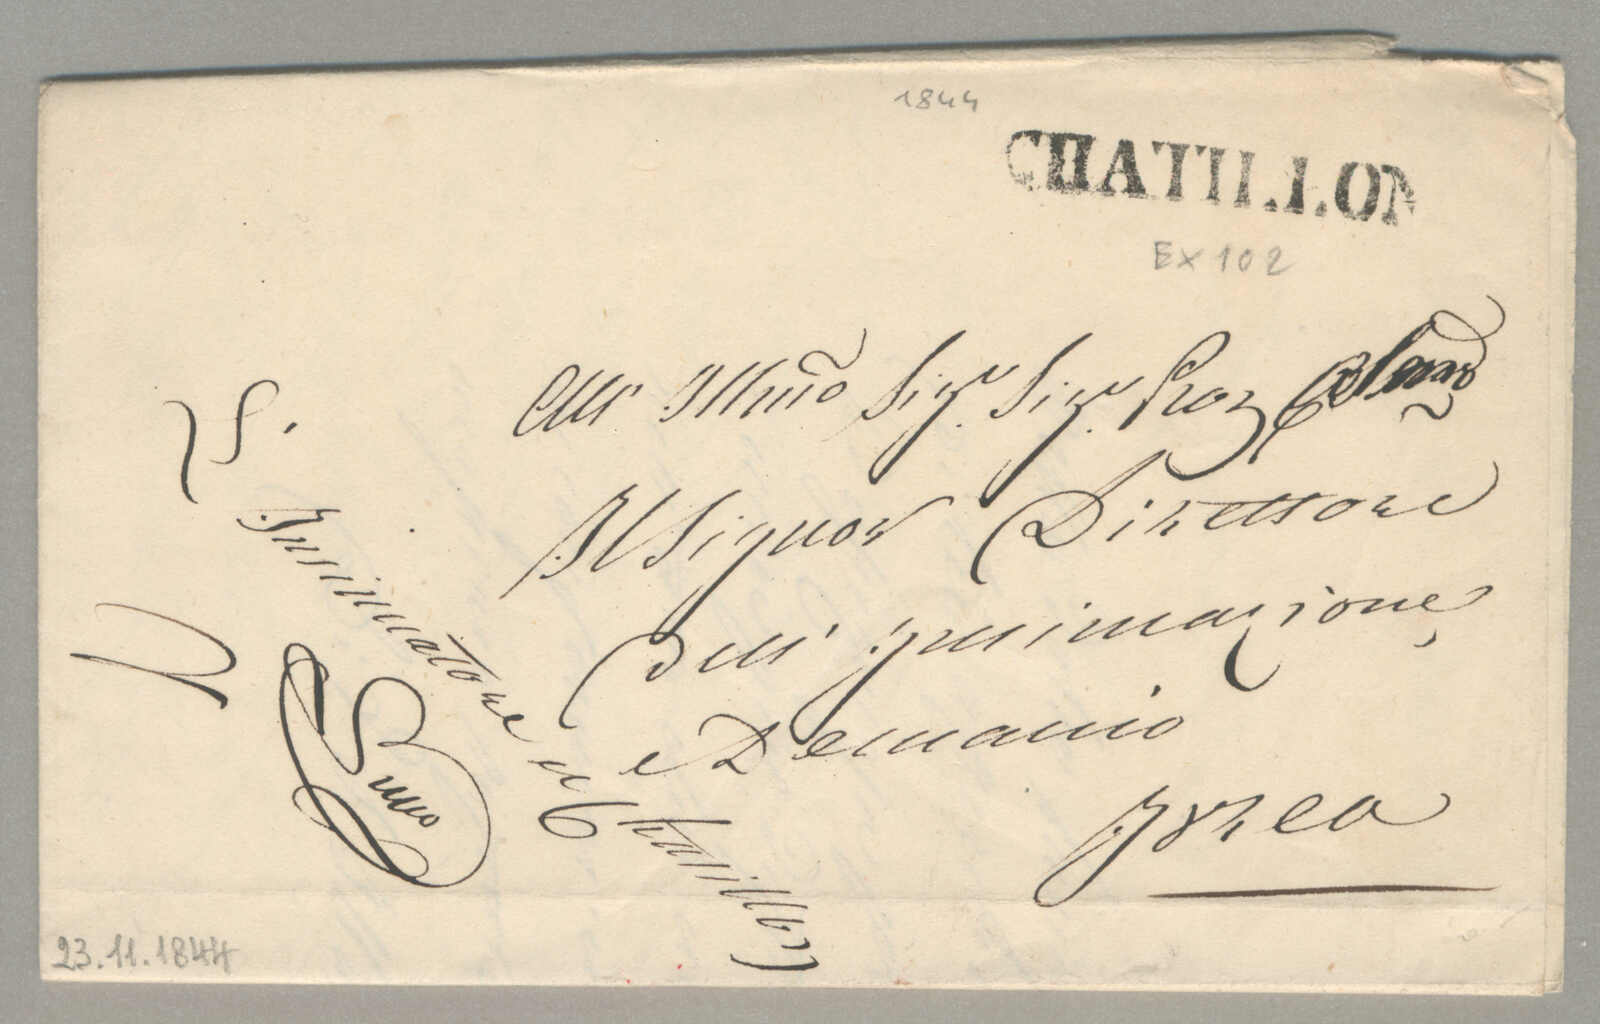 1844
CHATILLON
EX 102
All' Illmo Sigr. Sigr.
Il Signor Direttore
dell' Insinuazione
e Demanio
Ivrea
L'
Insinuatore di Chatillon
23.11.1844